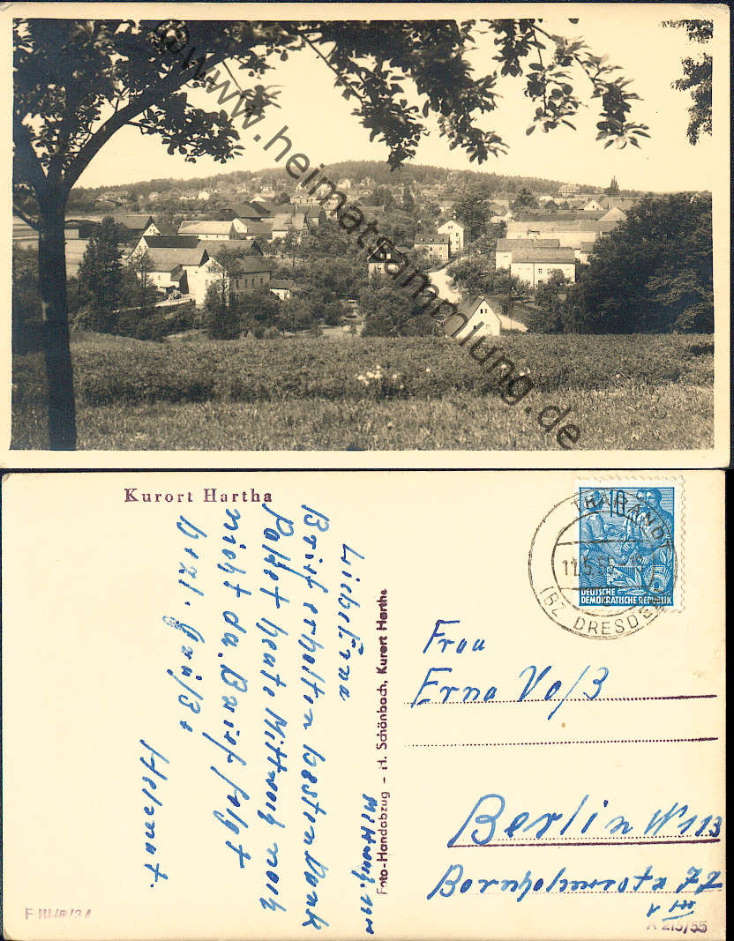 @www.heimatsammlung.de
Kurort Hartha
THARANDT
11.5.5
(BZ DRESDEN)
DEUTSCHE
DEMOKRATISCHE REPUBLIK
Mittwoch
Liebe Erna
Brief erhalten besten Dank
Paket heute Mittwoch noch
nicht da. Brief folgt
herzl. Grüße
Helmut.
Foto-Handabzug - H. Schönbach, Kurort Hartha
Frau
Erna Voß
Berlin W 113
Bornholmerstr 77
v III
F III/18/31
A 215/55